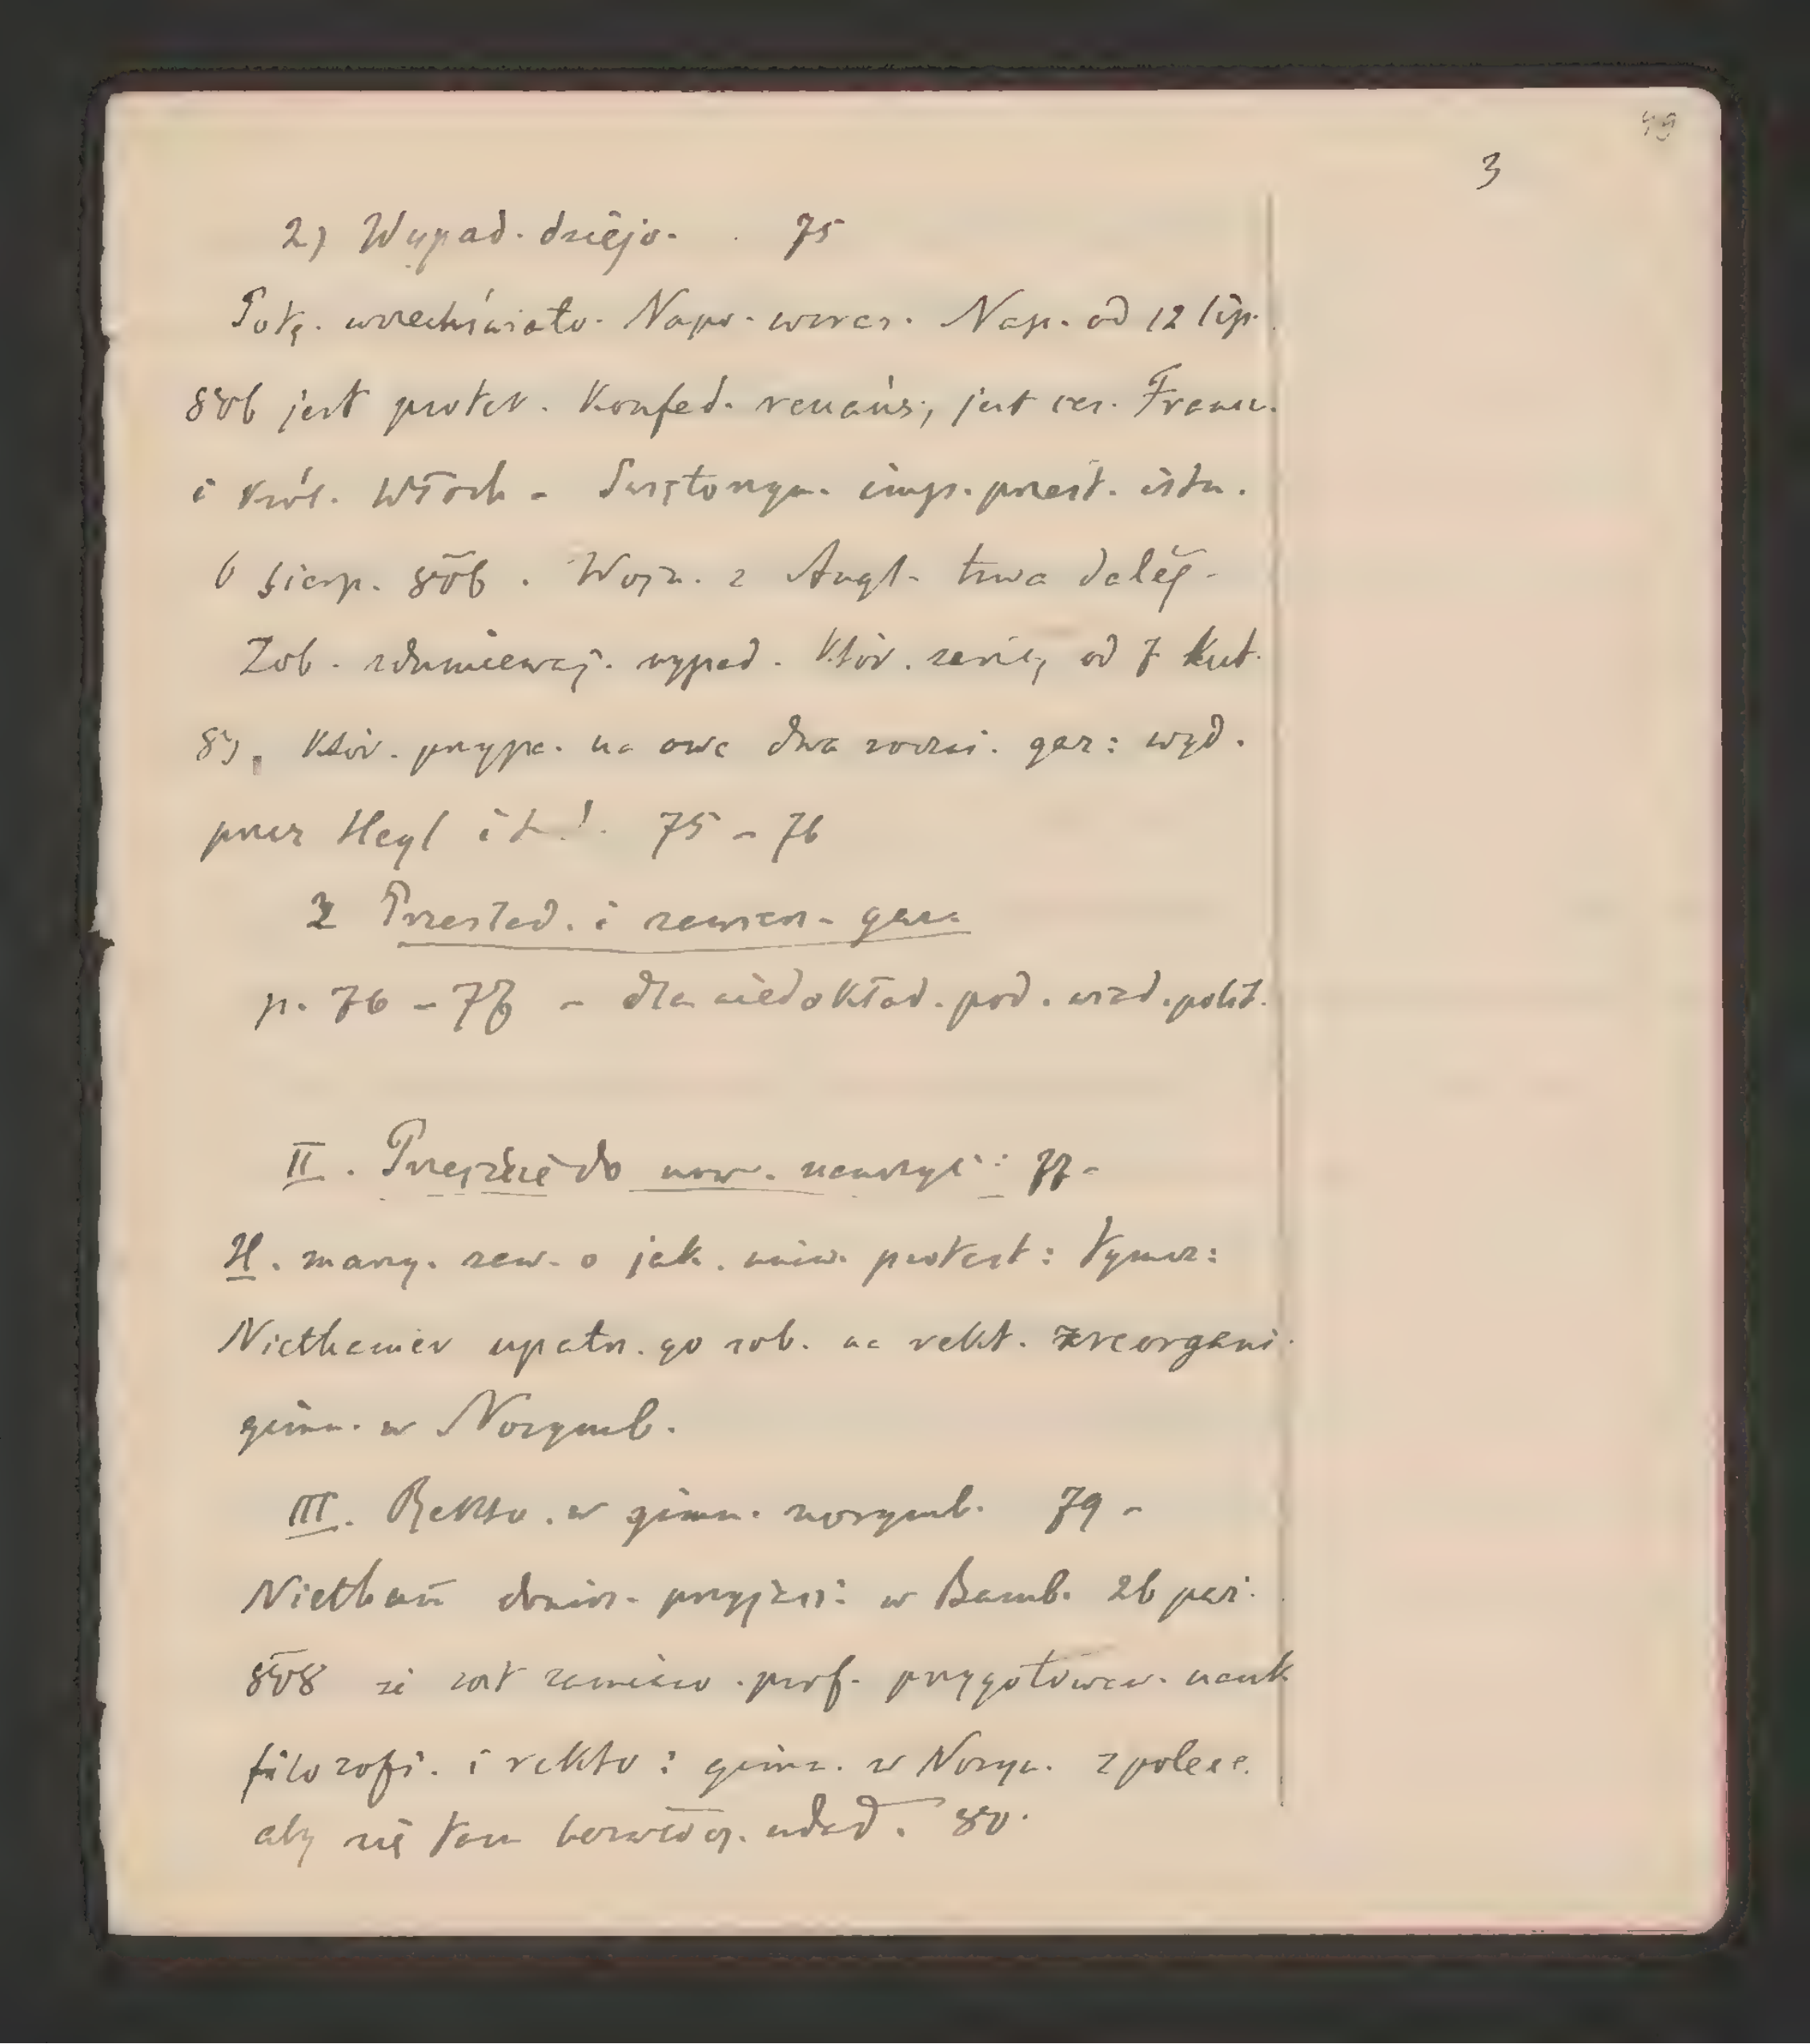 49
3
2) Wypad. dziejo. 75
Potę. wszechświato. Napo. wzras. Nap. od 12 lip.
806 jest protek. Konfed. reńańs:, jest ces. Franc.
i król. Włoch - Świętorzym. imp. przest. istn.
6 sierp. 806. Wojn. z Angl. trwa dalej.
Zob. zdumiewaj. wypad. któr. od 7 Kwt.
któr. przypa. na owe dwa rodzi. gaz: wyd.
przez Hegl 75 - 76
2 Przeszład. i zawiesz. gaz.
p. 76 - 78 - dla niedokład. pod. wiad. polit.
II. Przejście do now. nauczyc: 77 -
H. marzy. zaw. o jak. uniw. protest: tymcz:
Niethamer upatrz. go sob. na rekt. zreorgani.
gimn. w Norymb.
III. Rekto. w gimn. norymb. 79 -
Nietham donios. przyjaci: w Bamb. 26 paź.
808 że zost zamiano. prof. przygotowaw. nauk
filozofi. i rekto: gimn. w Norym. z polece.
aby się tam bezwłocz. udad. 80.